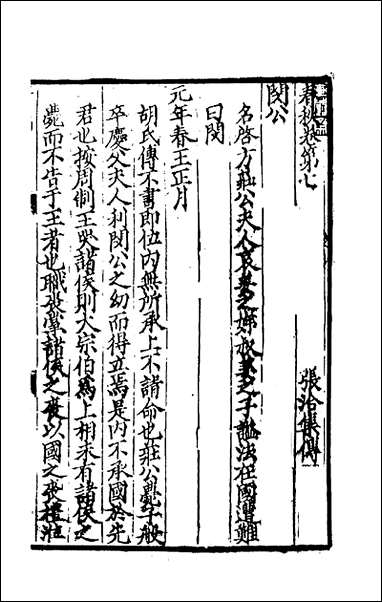 春秋卷第七　張洽集傳
閔公
名啓方莊公夫人哀姜之娣叔姜之子謚法在國遭難
曰閔
元年春王正月
胡氏傳不書即位內無所承上不請命也莊公薨子般
卒慶父夫人利閔公之幼而得立焉是內不承國於先
君也按周制王哭諸侯則大宗伯爲上相未有諸侯之
薨而不告于王者也職喪掌諸侯之喪以國之喪禮涖